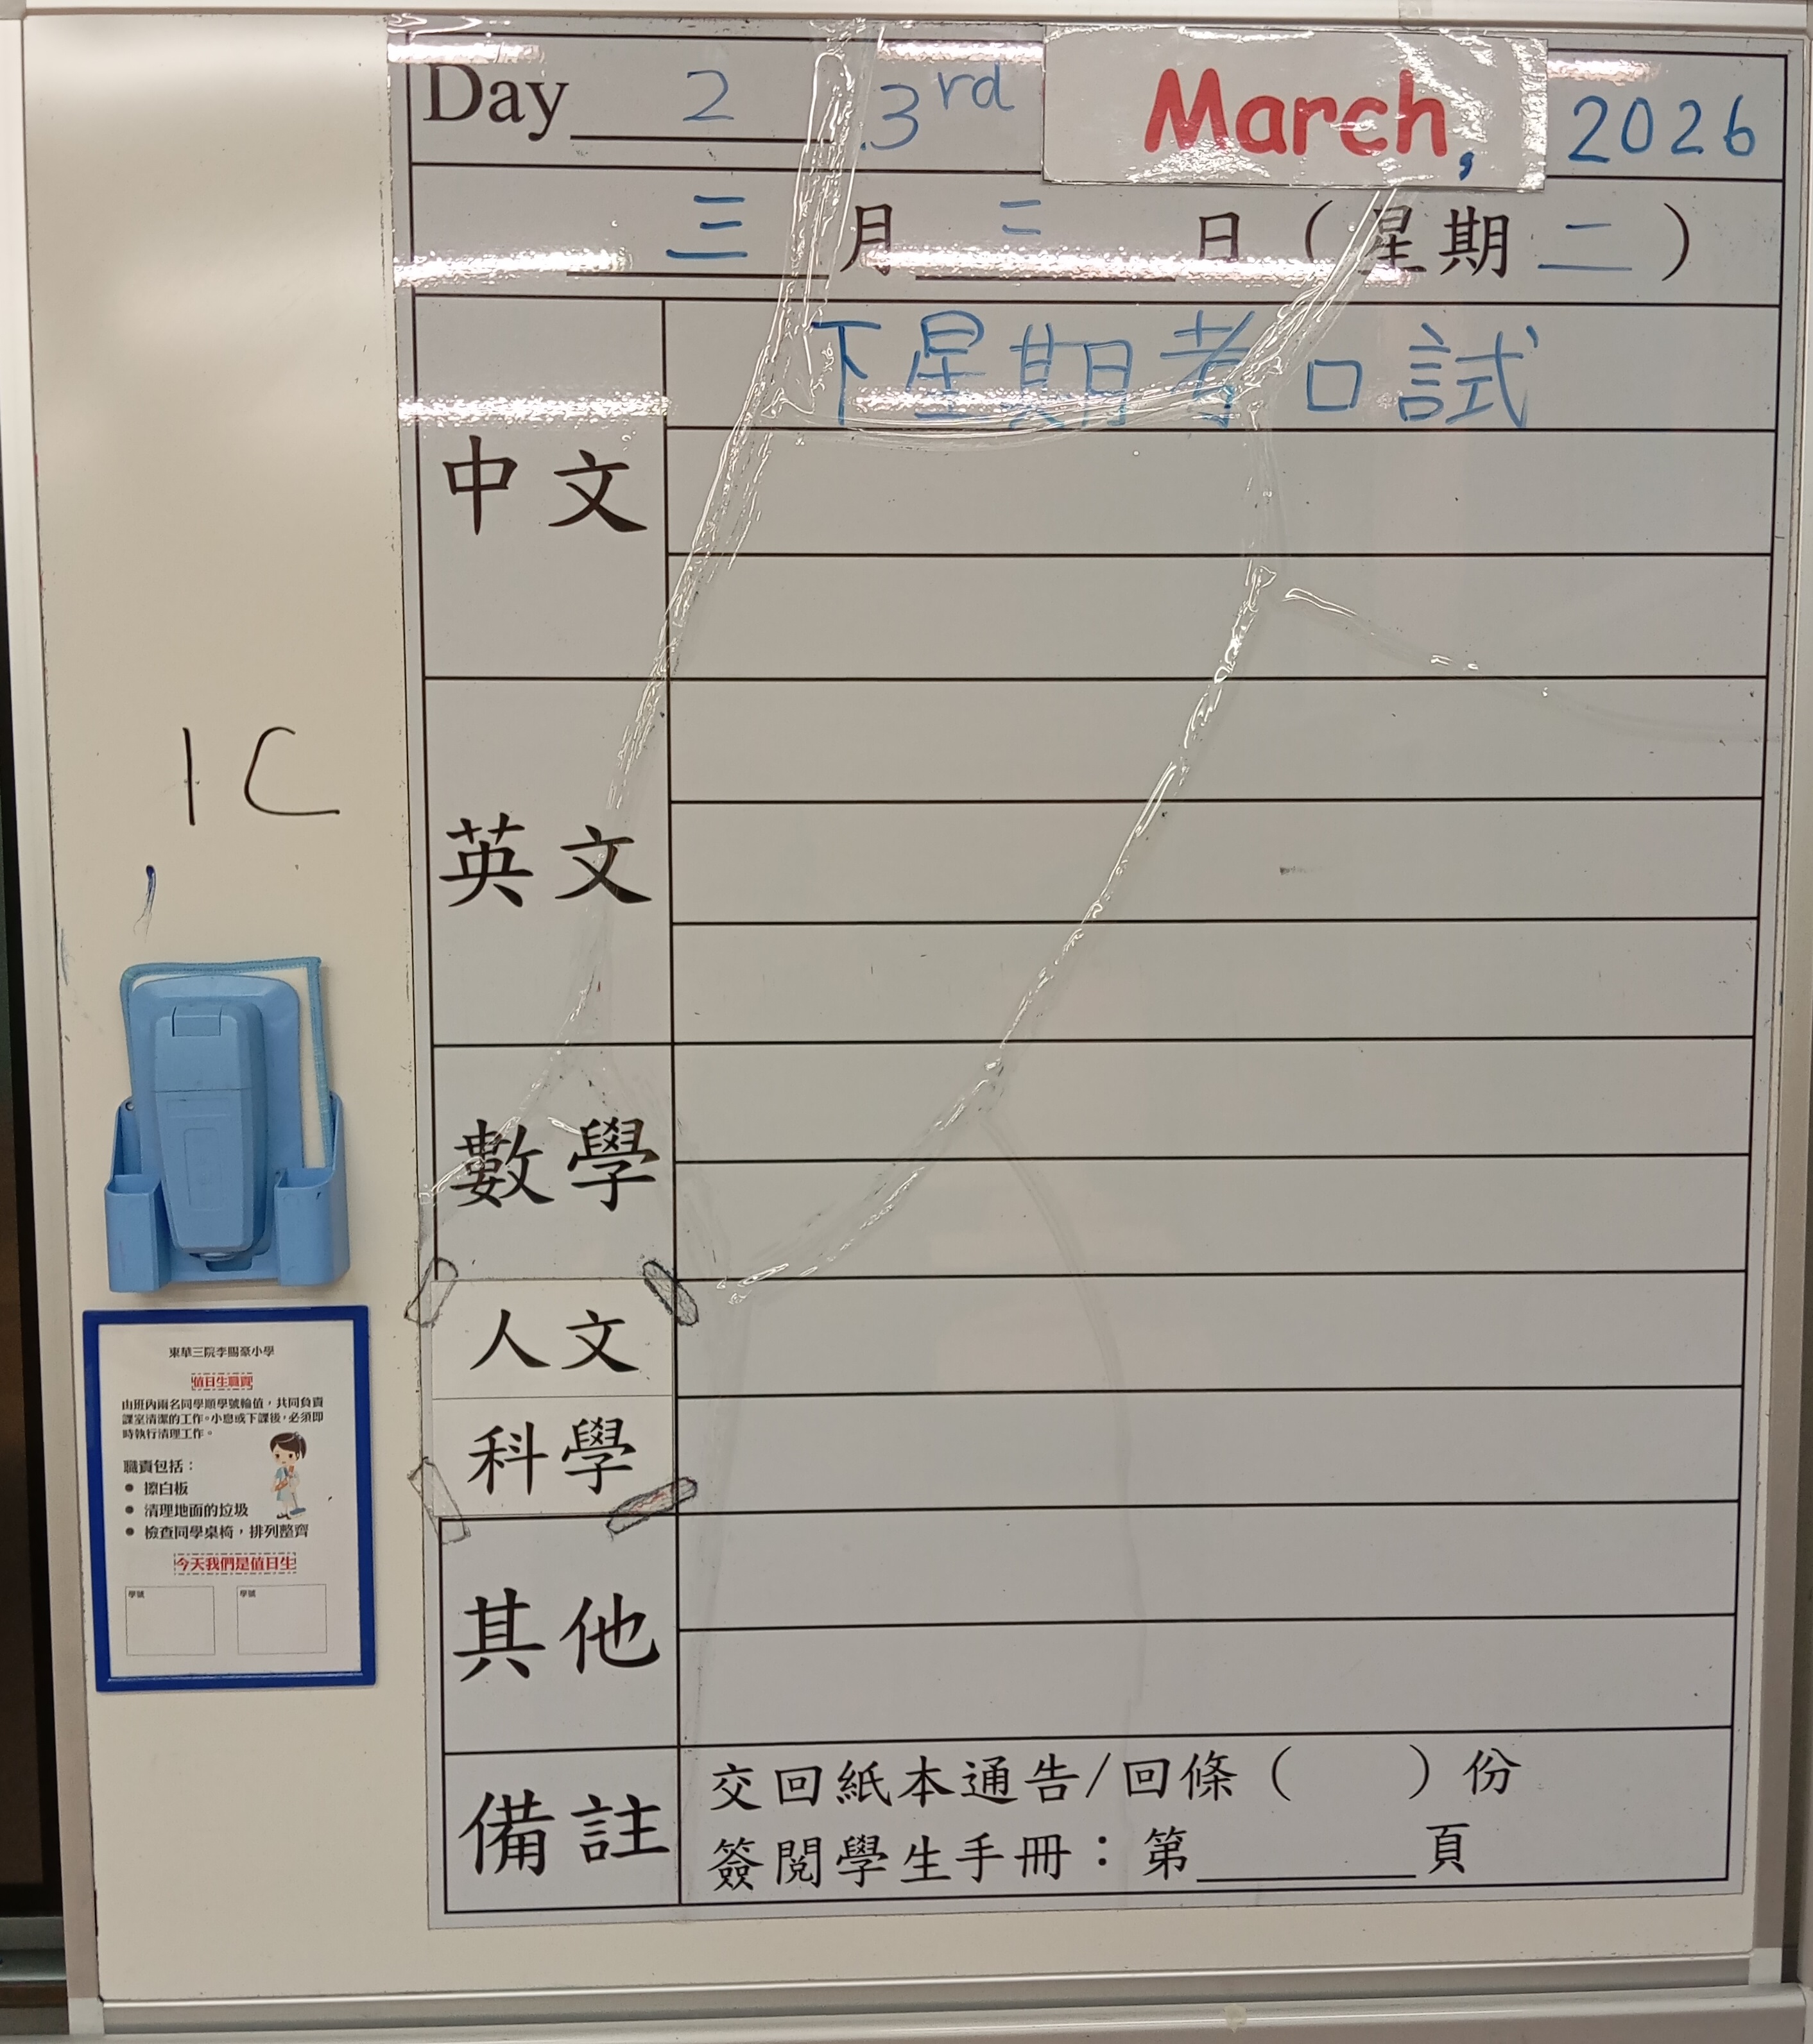 Day 2 3rd March, 2026
三月三日（星期二）
中文
下星期考口試
英文
數學
人文
科學
其他
備註
交回紙本通告/回條（ ）份
簽閱學生手冊：第______頁
1C
東華三院李賜豪小學
值日生職責
由班內兩名同學順學號輪值，共同負責
課室清潔的工作。小息或下課後，必須即
時執行清理工作。
職責包括：
● 擦白板
● 清理地面的垃圾
● 檢查同學桌椅，排列整齊
今天我們是值日生
學號 學號